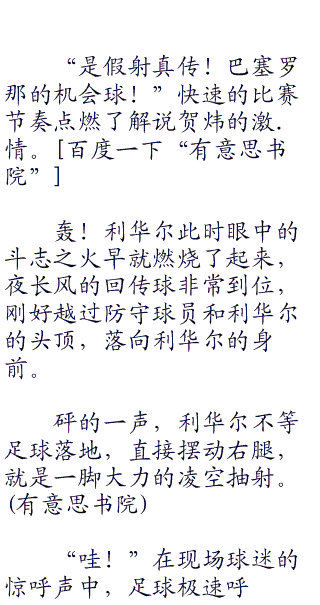 “是假射真传！巴塞罗
那的机会球！”快速的比赛
节奏点燃了解说贺炜的激.
情。[百度一下“有意思书
院”]
轰！利华尔此时眼中的
斗志之火早就燃烧了起来，
夜长风的回传球非常到位，
刚好越过防守球员和利华尔
的头顶，落向利华尔的身
前。
砰的一声，利华尔不等
足球落地，直接摆动右腿，
就是一脚大力的凌空抽射。
(有意思书院)
“哇！”在现场球迷的
惊呼声中，足球极速呼